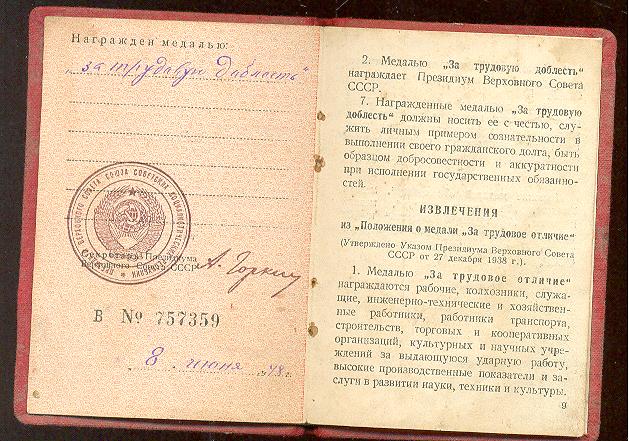 Награжден медалью:
„за трудовую доблесть"
Секретарь Президиума
Верховного Совета СССР
А. Горкин
В № 757359
„8 июня 1948 г.
2. Медалью „За трудовую доблесть"
награждает Президиум Верховного Совета
СССР.
7. Награжденные медалью „За трудовую
доблесть" должны носить ее с честью, слу-
жить личным примером сознательности в
выполнении своего гражданского долга, быть
образцом добросовестности и аккуратности
при исполнении государственных обязанно-
стей.
ИЗВЛЕЧЕНИЯ
из „Положения о медали „За трудовое отличие"
(Утверждено Указом Президиума Верховного Совета
СССР от 27 декабря 1938 г.).
1. Медалью „За трудовое отличие"
награждаются рабочие, колхозники, служа-
щие, инженерно-технические и хозяйствен-
ные работники, работники транспорта,
строительств, торговых и кооперативных
организаций, культурных и научных учре-
ждений за выдающуюся ударную работу,
высокие производственные показатели и за-
слуги в развитии науки, техники и культуры.
9